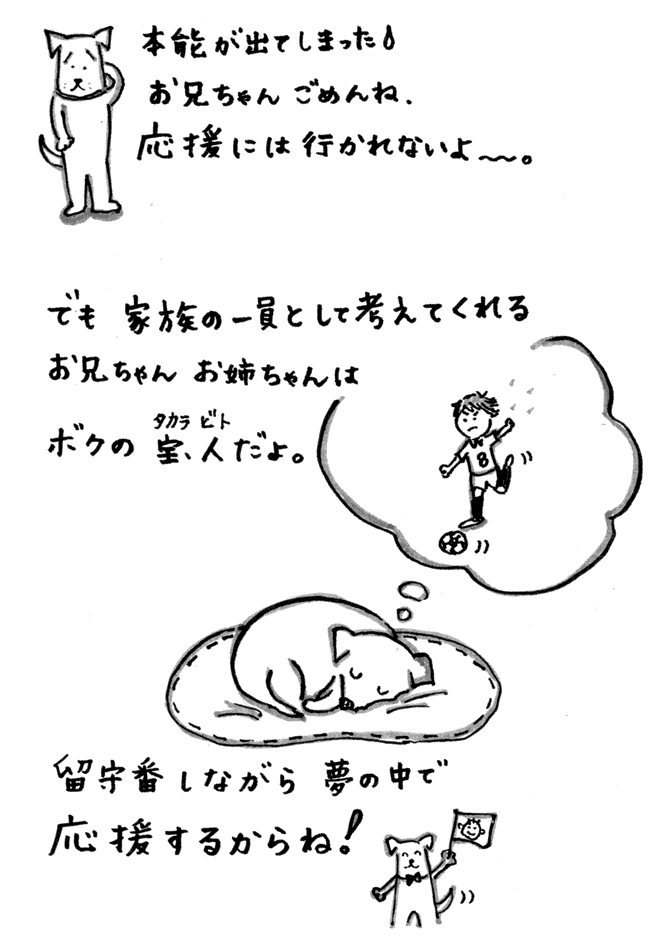 本能が出てしまった!
お兄ちゃん ごめんね.
応援には行かれないよ〜〜。
でも 家族の一員として考えてくれる
お兄ちゃん お姉ちゃんは
タカラ ビト
ボクの 宝、人だよ。
8
留守番しながら 夢の中で
応援するからね!